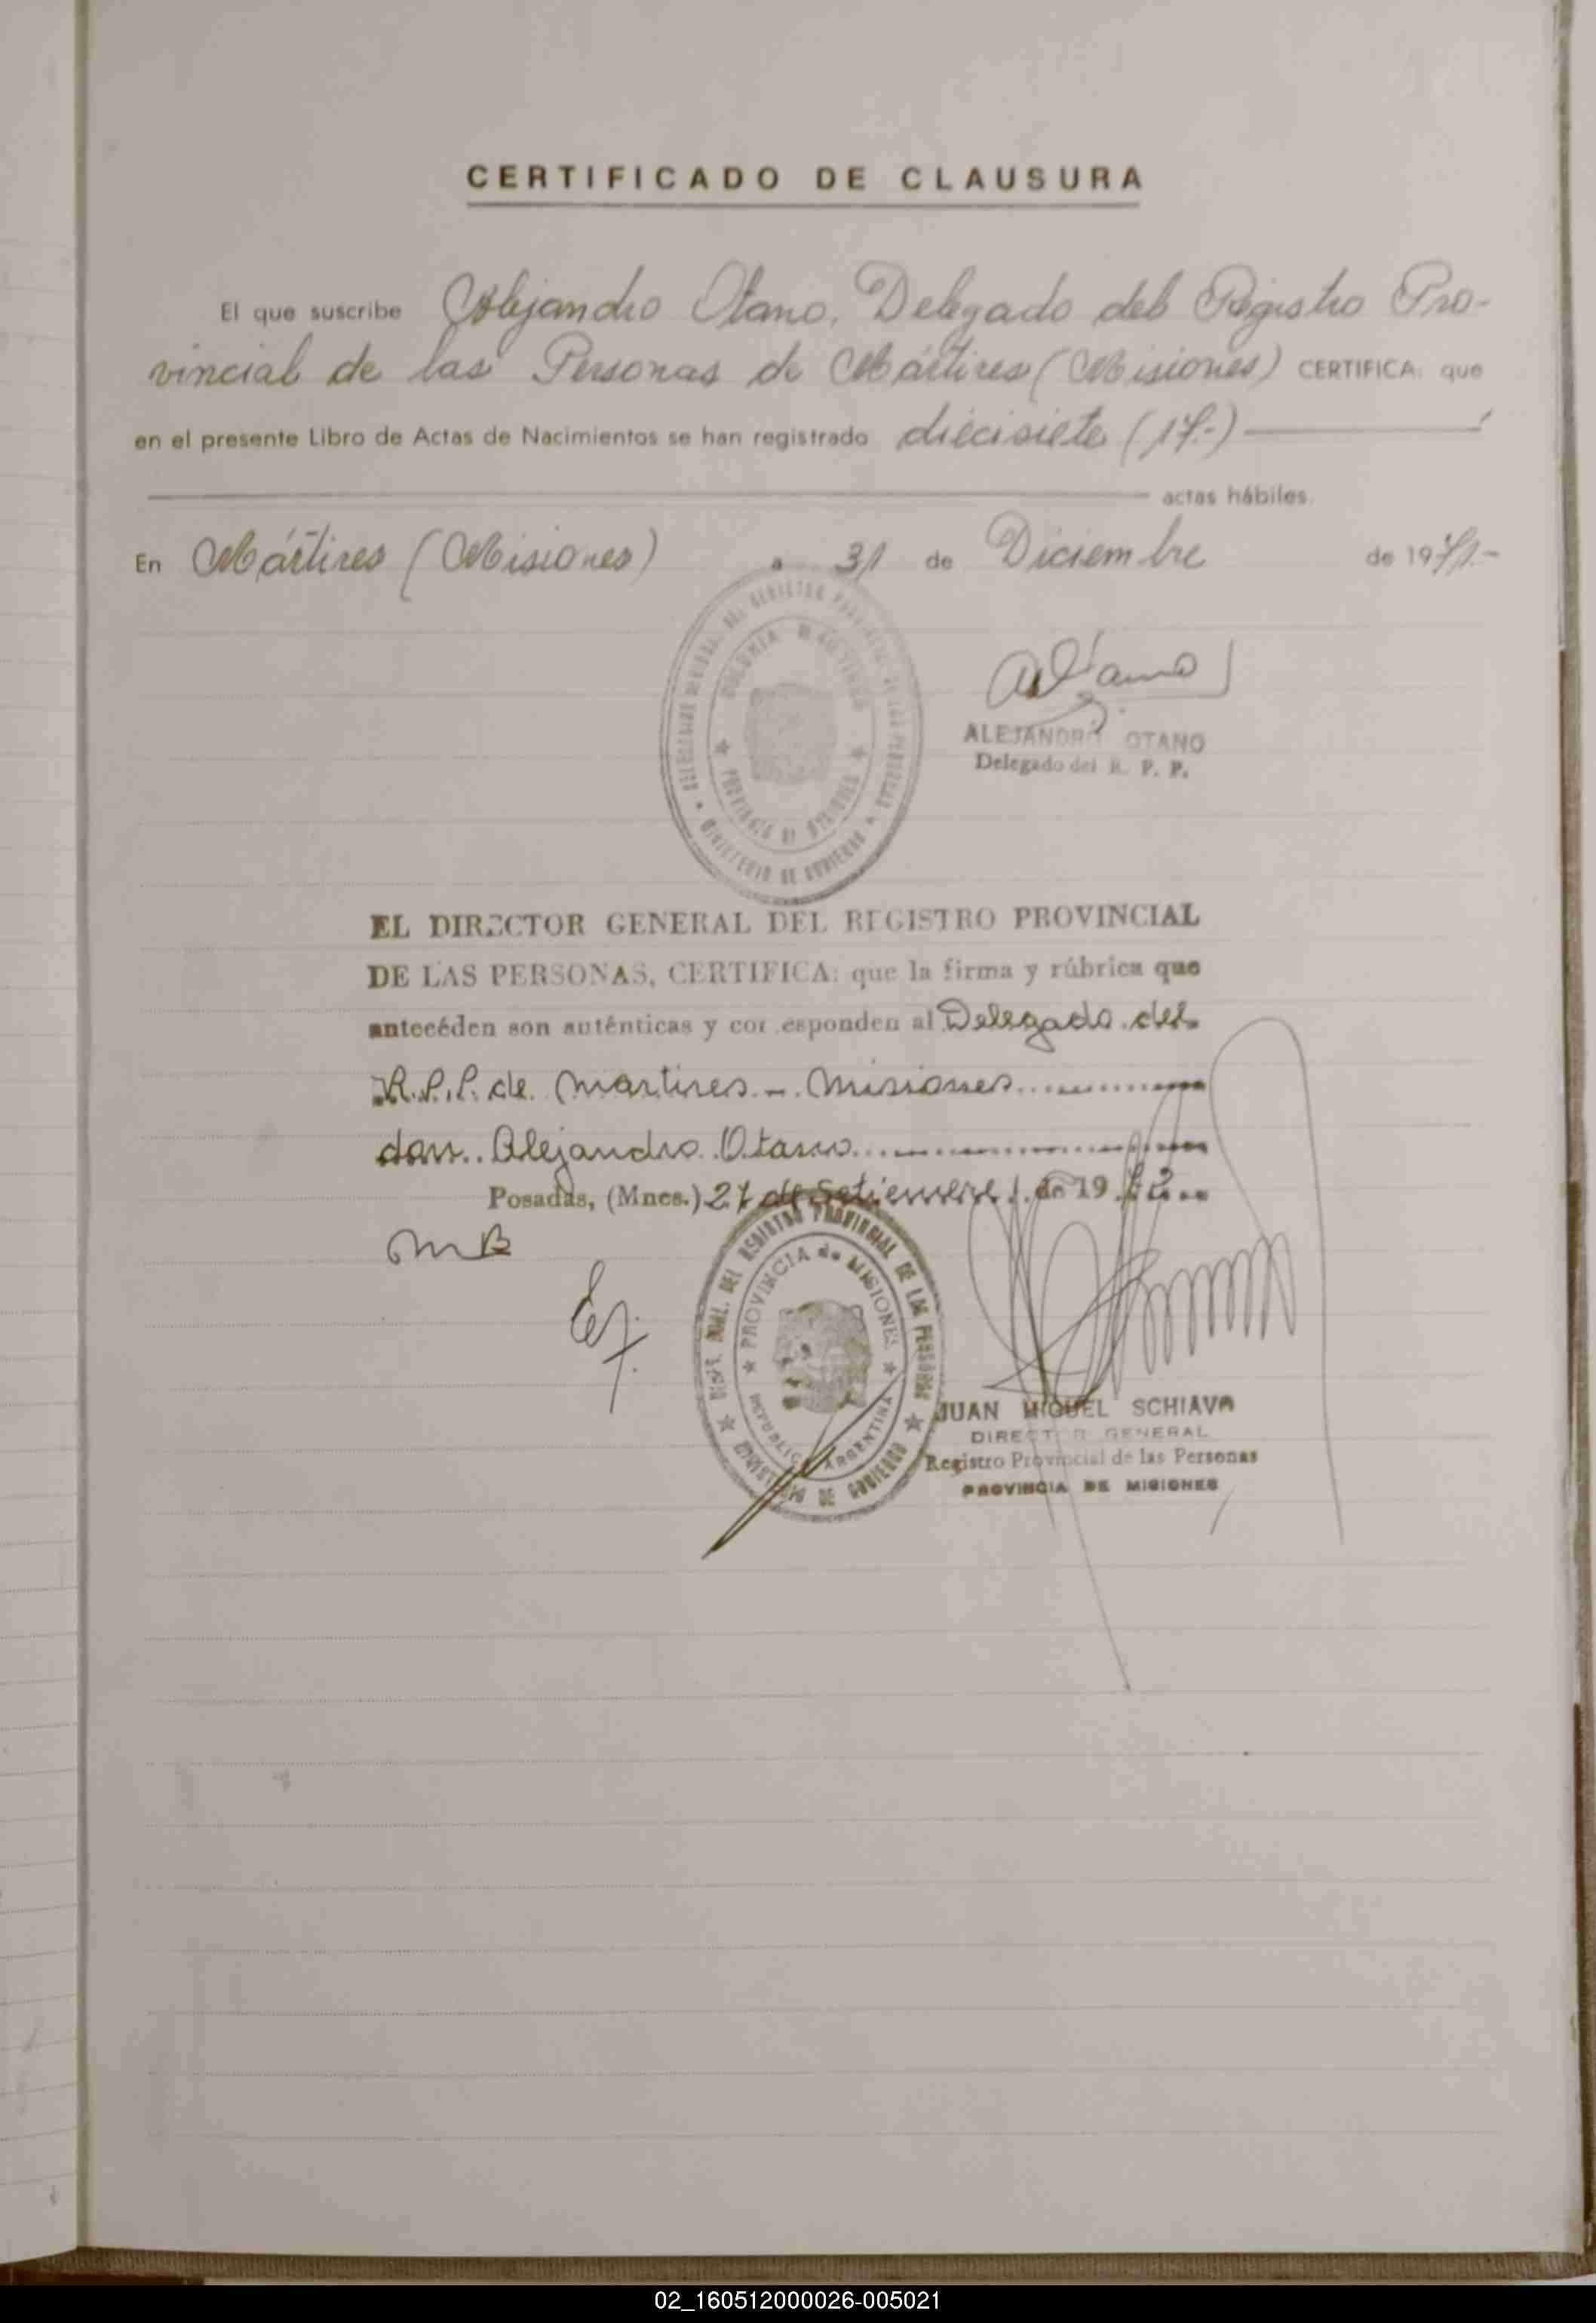 CERTIFICADO DE CLAUSURA
El que suscribe Alejandro Otano, Delegado del Registro Pro-
vincial de las Personas de Mártires (Misiones) CERTIFICA: que
en el presente Libro de Actas de Nacimientos se han registrado diecisiete (17.-)
actas hábiles.
En Mártires (Misiones) a 31 de Diciembre de 1971.-
MINISTERIO DE GOBIERNO
PROVINCIA DE MISIONES
ALEJANDRO OTANO
Delegado del R. P. P.
EL DIRECTOR GENERAL DEL REGISTRO PROVINCIAL
DE LAS PERSONAS, CERTIFICA: que la firma y rúbrica que
antecéden son auténticas y corresponden al Delegado del
R.P.P. de Martires - Misiones
don Alejandro Otano
Posadas, (Mnes.) 27 de Setiembre de 19
MB
DEL REGISTRO PROVINCIAL DE LAS PERSONAS
MINISTERIO DE GOBIERNO
PROVINCIA de MISIONES
REPUBLICA ARGENTINA
JUAN MIGUEL SCHIAVO
DIRECTOR GENERAL
Registro Provincial de las Personas
PROVINCIA DE MISIONES
02_160512000026-005021